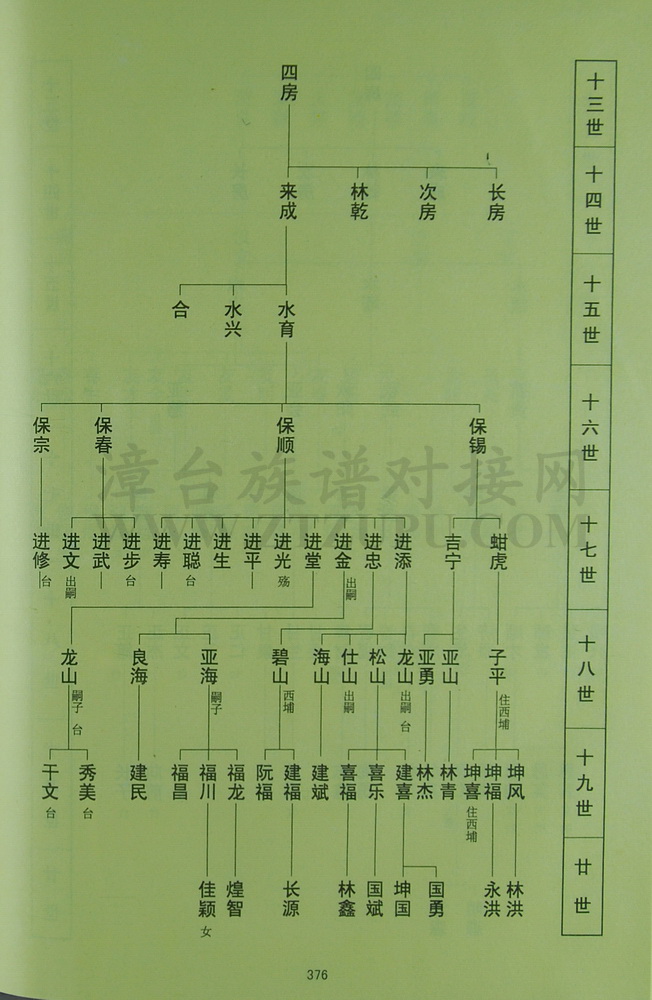 十三世
十四世
十五世
十六世
十七世
十八世
十九世
廿世
四房
长房
次房
林乾
来成
水育
水兴
合
保锡
保顺
保春
保宗
蚶虎
吉宁
进添
进忠
进金 出嗣
进堂
进光 殇
进平
进生
进聪 台
进寿
进步 台
进武
进文 出嗣
进修 台
子平 住西埔
亚山
亚勇
龙山 出嗣 台
松山
仕山 出嗣
海山
碧山 西埔
亚海 嗣子
良海
龙山 嗣子 台
坤风
坤福
坤喜 住西埔
林青
林杰
建喜
喜乐
喜福
建斌
建福
阮福
福龙
福川
福昌
建民
秀美 台
干文 台
林洪
永洪
国勇
坤国
国斌
林鑫
长源
煌智
佳颖 女
漳台族谱对接网
WWW.ZTZUPU.COM
376